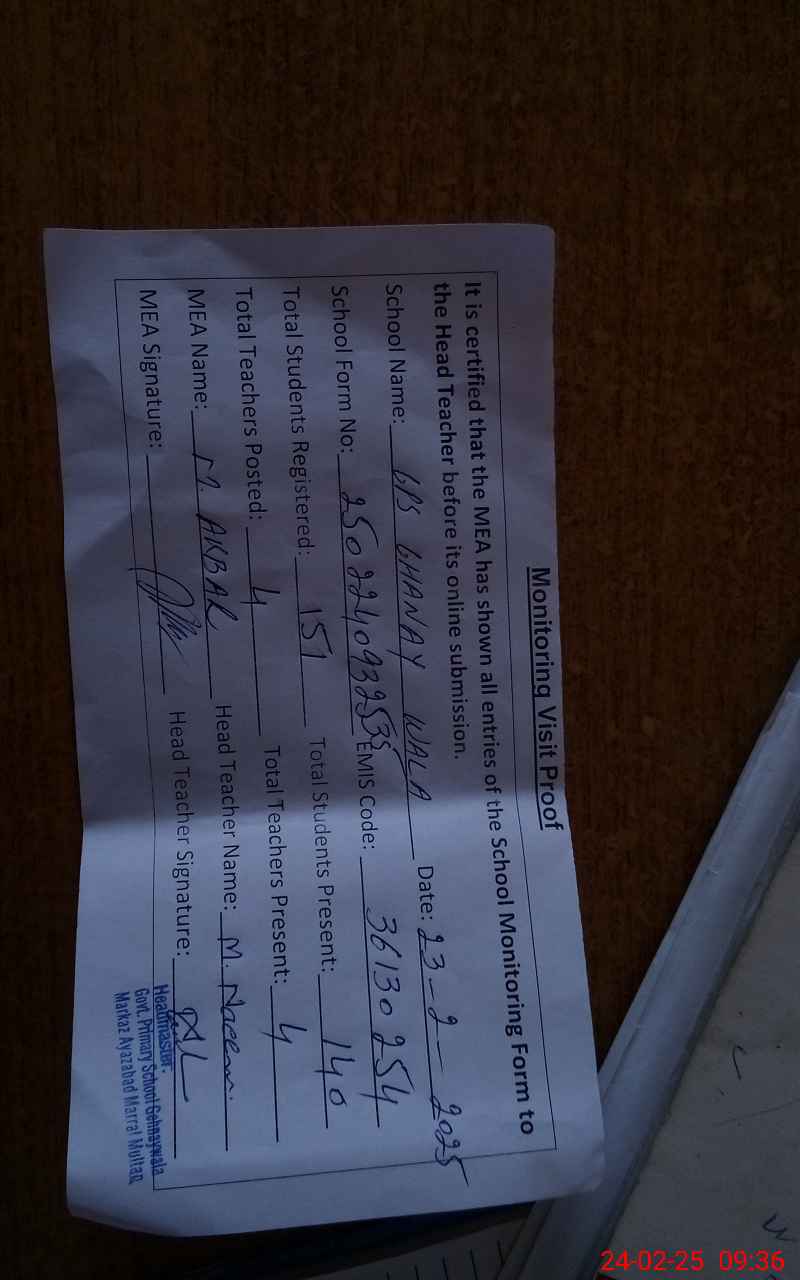 Monitoring Visit Proof
It is certified that the MEA has shown all entries of the School Monitoring Form to
the Head Teacher before its online submission.
School Name: GPS GHANAY WALA Date: 23-2-2025
School Form No: 2502240932535 EMIS Code: 36130254
Total Students Registered: 151 Total Students Present: 140
Total Teachers Posted: 4 Total Teachers Present: 4
MEA Name: M. AKBAR Head Teacher Name: M. Naeem
MEA Signature: Head Teacher Signature:
Headmaster
Govt. Primary School Gehnaywala
Markaz Ayazabad Marral Multan
24-02-25 09:36